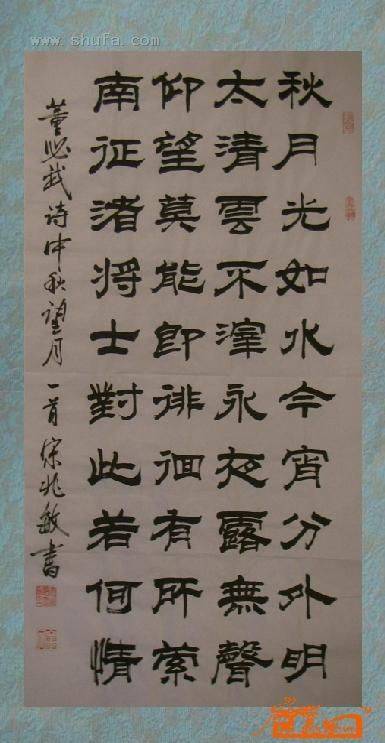 www.shufa.com
秋月光如水今宵分外明
太清雲不滓永夜露無聲
仰望莫能即徘徊有所萦
南征渚将士對此若何情
董必武诗中秋望月一首 兆敏書